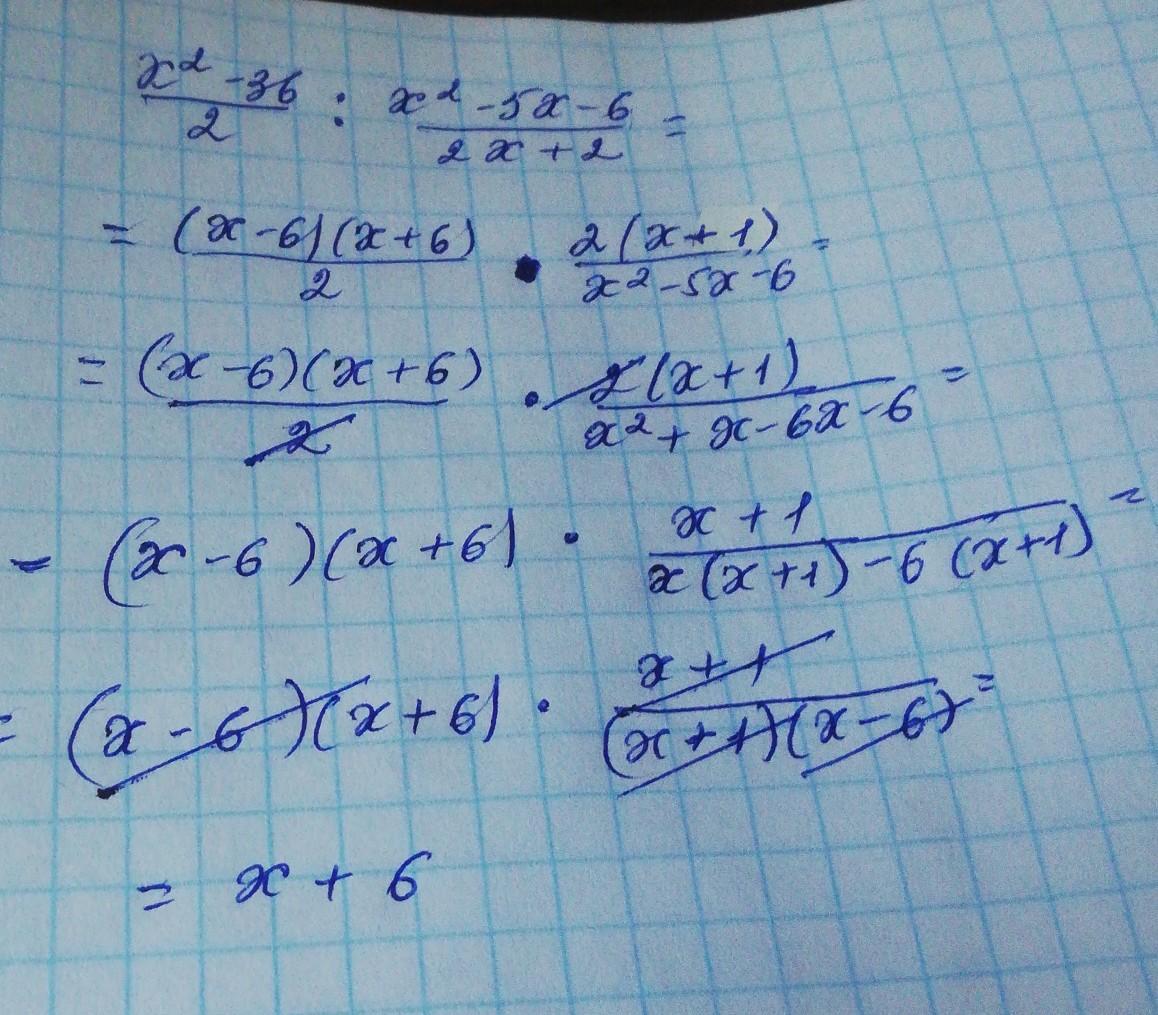 x² -36 / 2 : x² -5x -6 / 2x + 2 =
= (x -6)(x+6) / 2 • 2(x+1) / x² -5x -6 =
= (x -6)(x+6) / 2 · 2(x+1) / x² + x - 6x - 6 =
= (x -6)(x+6) · x + 1 / x(x+1) -6(x+1) =
= (x - 6)(x+6) · x + 1 / (x+1)(x-6) =
= x + 6